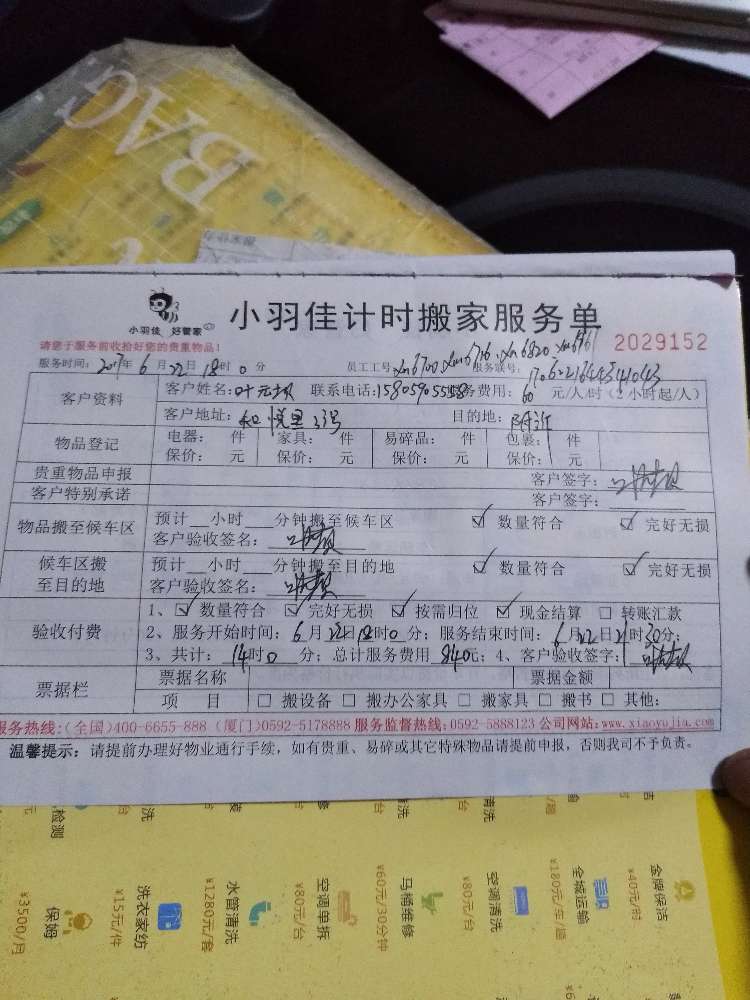 BAG
小羽佳 好管家
小羽佳计时搬家服务单
2029152
请您于服务前收拾好您的贵重物品!
服务时间: 2017年 6月 22日 18时 0分 员工工号: xm6700 xm6716 xm6820 服务联号:
客户资料
客户姓名: 叶元 联系电话: 服务费用: 60 元/人/时(2小时起/人)
客户地址: 和悦里33号 目的地: 附近
物品登记
电器: 件 家具: 件 易碎品: 件 包裹: 件
保价: 元 保价: 元 保价: 元 保价: 元
贵重物品申报 客户签字:
客户特别承诺 客户签字:
物品搬至候车区
预计__小时___分钟搬至候车区 ☑ 数量符合 ☑ 完好无损
客户验收签名:
候车区搬至目的地
预计__小时___分钟搬至目的地 ☑ 数量符合 ☑ 完好无损
客户验收签名:
验收付费
1、☑ 数量符合 ☑ 完好无损 ☑ 按需归位 ☑ 现金结算 □ 转账汇款
2、服务开始时间: 6月22日18时0分; 服务结束时间: 6月22日21时30分;
3、共计: 14时0分; 总计服务费用 840元; 4、客户验收签字:
票据栏
票据名称 票据金额
项 目 □ 搬设备 □ 搬办公家具 □ 搬家具 □ 搬书 □ 其他:
服务热线:(全国)400-6655-888 (厦门)0592-5178888 服务监督热线:0592-5888123 公司网站:www.xiaoyujia.com
温馨提示: 请提前办理好物业通行手续, 如有贵重、易碎或其它特殊物品请提前申报, 否则我司不予负责。
金牌保洁
¥40元/时
全城运输
¥180元/车/趟
空调清洗
¥80元/台
马桶维修
¥60元/30分钟
空调单拆
¥80元/台
水管清洗
¥1280元/套
洗衣家纺
¥15元/件
保姆
¥3500/月